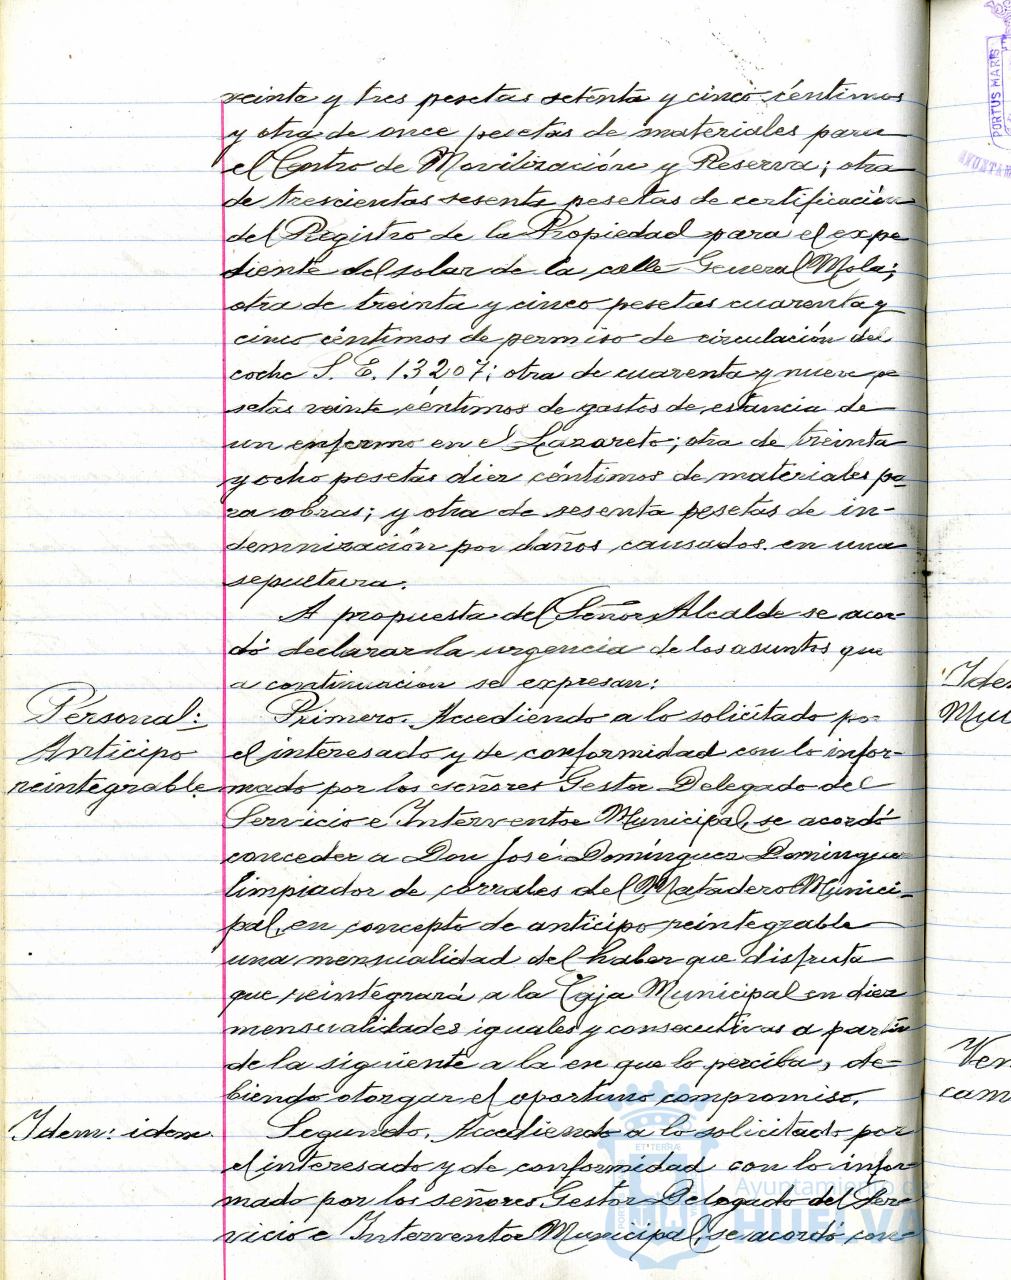 veinte y tres pesetas setenta y cinco céntimos
y otra de once pesetas de materiales para
el Centro de Movilización y Reserva; otra
de trescientas sesenta pesetas de certificación
del Registro de la Propiedad para el expe
diente del solar de la calle General Mola;
otra de treinta y cinco pesetas cuarenta y
cinco céntimos de permiso de circulación del
coche S. E. 13207; otra de cuarenta y nueve pe
setas veinte céntimos de gastos de estancia de
un enfermo en el Lazareto; otra de treinta
y ocho pesetas diez céntimos de materiales pa-
ra obras; y otra de sesenta pesetas de in-
demnización por daños causados en una
sepultura.
A propuesta del Señor Alcalde se acor-
dó declarar la urgencia de los asuntos que
a continuación se expresan:
Personal:
Anticipo
reintegrable
Primero. Accediendo a lo solicitado por
el interesado y de conformidad con lo infor-
mado por los señores Gestor Delegado del
Servicio e Interventor Municipal, se acordó
conceder a Don José Domínguez Domínguez
limpiador de corrales del Matadero Munici-
pal, en concepto de anticipo reintegrable
una mensualidad del haber que disfruta
que reintegrará a la Caja Municipal en diez
mensualidades iguales y consecutivas a partir
de la siguiente a la en que lo perciba, de-
biendo otorgar el oportuno compromiso.
Idem: idem.
Segundo. Accediendo a lo solicitado por
el interesado y de conformidad con lo infor-
mado por los señores Gestor Delegado del Ser-
vicio e Interventor Municipal, se acordó con-
Ayuntamiento de
HUELVA
PORTUS MARIS
Idem
Mu
Ven
cam